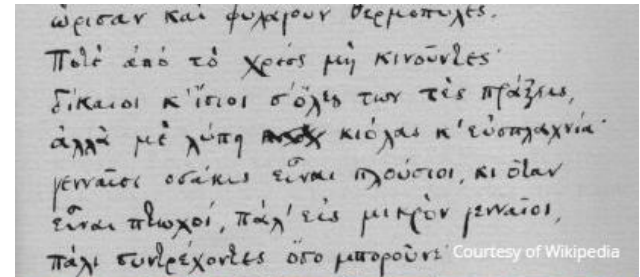 ώρισαν και φυλάγουν Θερμοπύλες.
Ποτέ από τὸ χρέος μὴ κινοῦντες·
δίκαιοι κ' ἴσιοι σ' ὅλες των τὲς πράξεις,
ἀλλὰ μὲ λύπη κιόλας κ' εὐσπλαχνία·
γενναῖοι οσάκις εἶναι πλούσιοι, κι ὅταν
εἶναι πτωχοί, πάλ' εἰς μικρὸν γενναῖοι,
πάλι συντρέχοντες ὅσο μποροῦνε·
Courtesy of Wikipedia